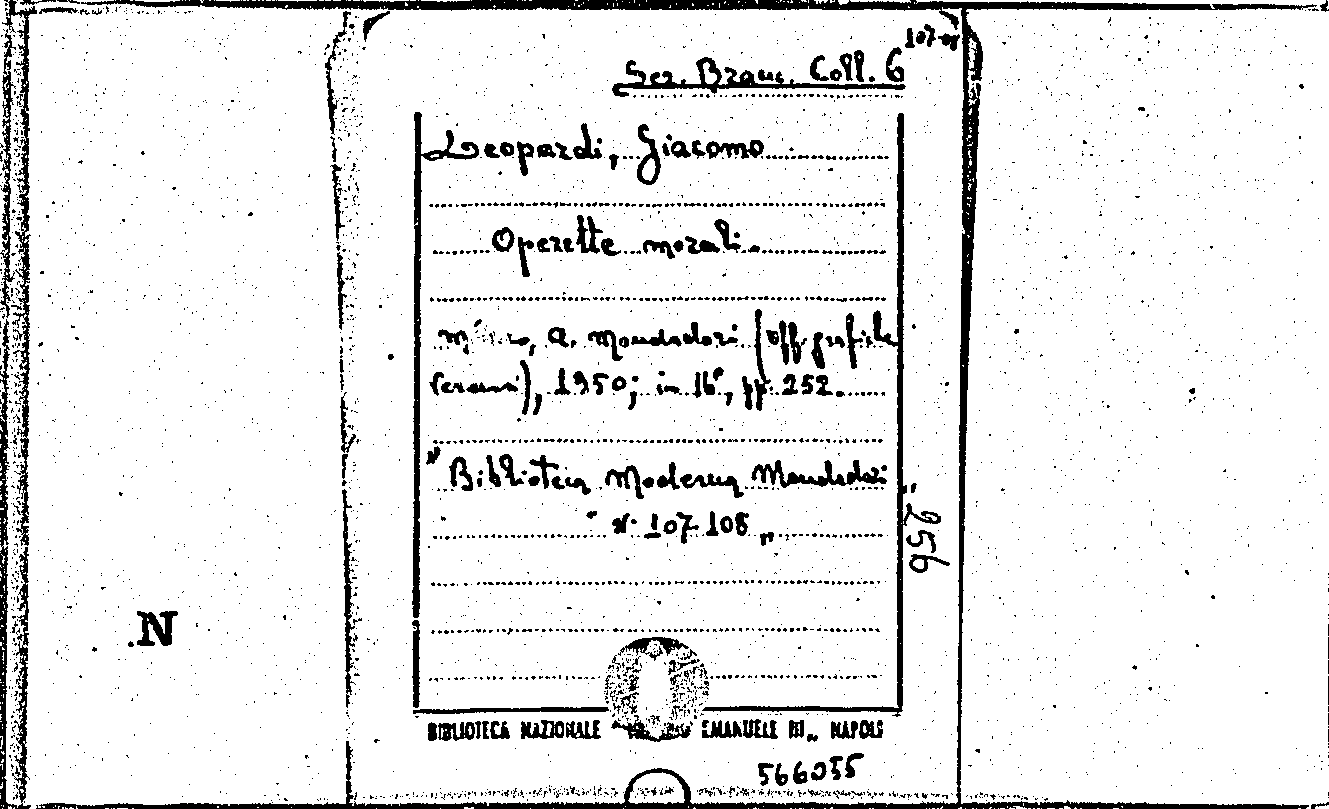 107-08
Sez. Branc. Coll. G
Leopardi, Giacomo
Operette morali.
A. Mondadori (off. grafiche
1950; in 16°, pp. 252.
"Biblioteca Moderna Mondadori"
N. 107-108"
256
N
BIBLIOTECA NAZIONALE EMANUELE III„ NAPOLI
566055